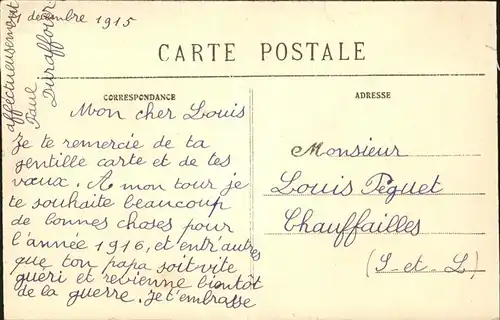 31 décembre 1915
CARTE POSTALE
CORRESPONDANCE
Mon cher Louis
Je te remercie de ta
gentille carte et de tes
vœux. A mon tour je
te souhaite beaucoup
de bonnes choses pour
l'année 1916, et entr'autres
que ton papa soit vite
guéri et revienne bientôt
de la guerre. Je t'embrasse
affectueusement
Paul
Duraffour
ADRESSE
Monsieur
Louis Péguet
Chauffailles
(S-et-L)